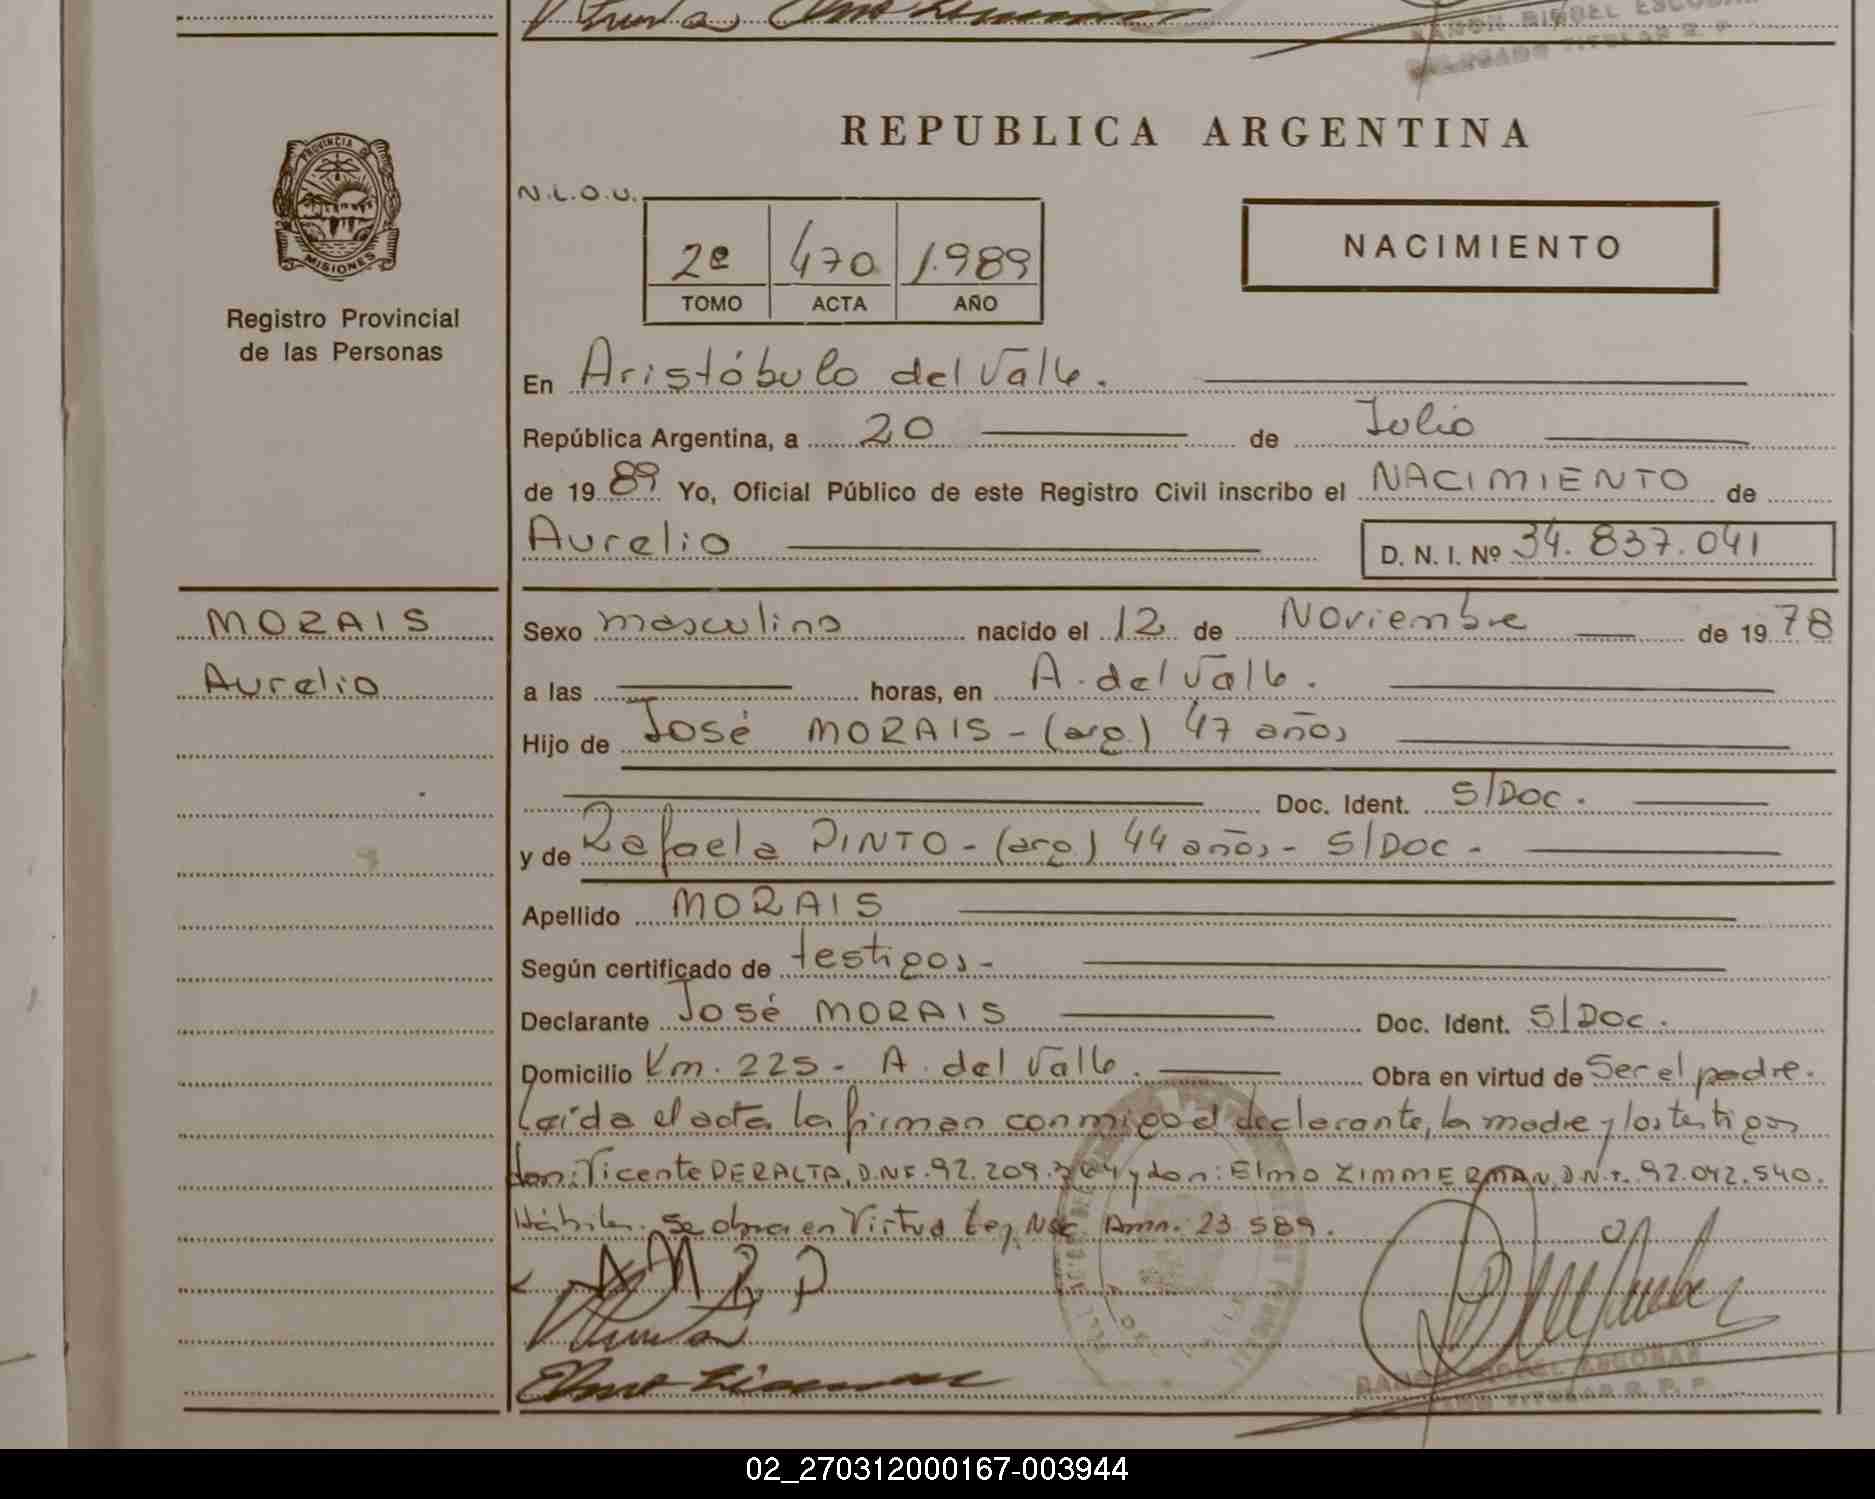 RAMON MIGUEL ESCOBAR
DELEGADO TITULAR R. P.
REPUBLICA ARGENTINA
PROVINCIA DE
MISIONES
Registro Provincial
de las Personas
N.L.O.U.
2º 470 1.989
TOMO ACTA AÑO
NACIMIENTO
En Aristóbulo del Valle.
República Argentina, a 20 de Julio
de 1989 Yo, Oficial Público de este Registro Civil inscribo el NACIMIENTO de
Aurelio D. N. I. Nº 34.837.041
MORAIS
Aurelio
Sexo masculino nacido el 12 de Noviembre de 1978
a las horas, en A. del Valle.
Hijo de José MORAIS - (arg.) 47 años
Doc. Ident. S/Doc.
y de Rafaela PINTO - (arg.) 44 años - S/Doc -
Apellido MORAIS
Según certificado de testigos -
Declarante José MORAIS Doc. Ident. S/Doc.
Domicilio Km. 225 - A. del Valle. Obra en virtud de Ser el padre.
Leída el acta la firman conmigo el declarante, la madre y los testigos
don: Vicente PERALTA, D.N.I. 92.209.364 y don: Elmo ZIMMERMAN, D.N.I. 92.042.540.
Hábiles. Se obra en Virtud Ley Nac Amn. 23 589.
A M R P
RAMON MIGUEL ESCOBAR
TITULAR R. P. P.
02_270312000167-003944